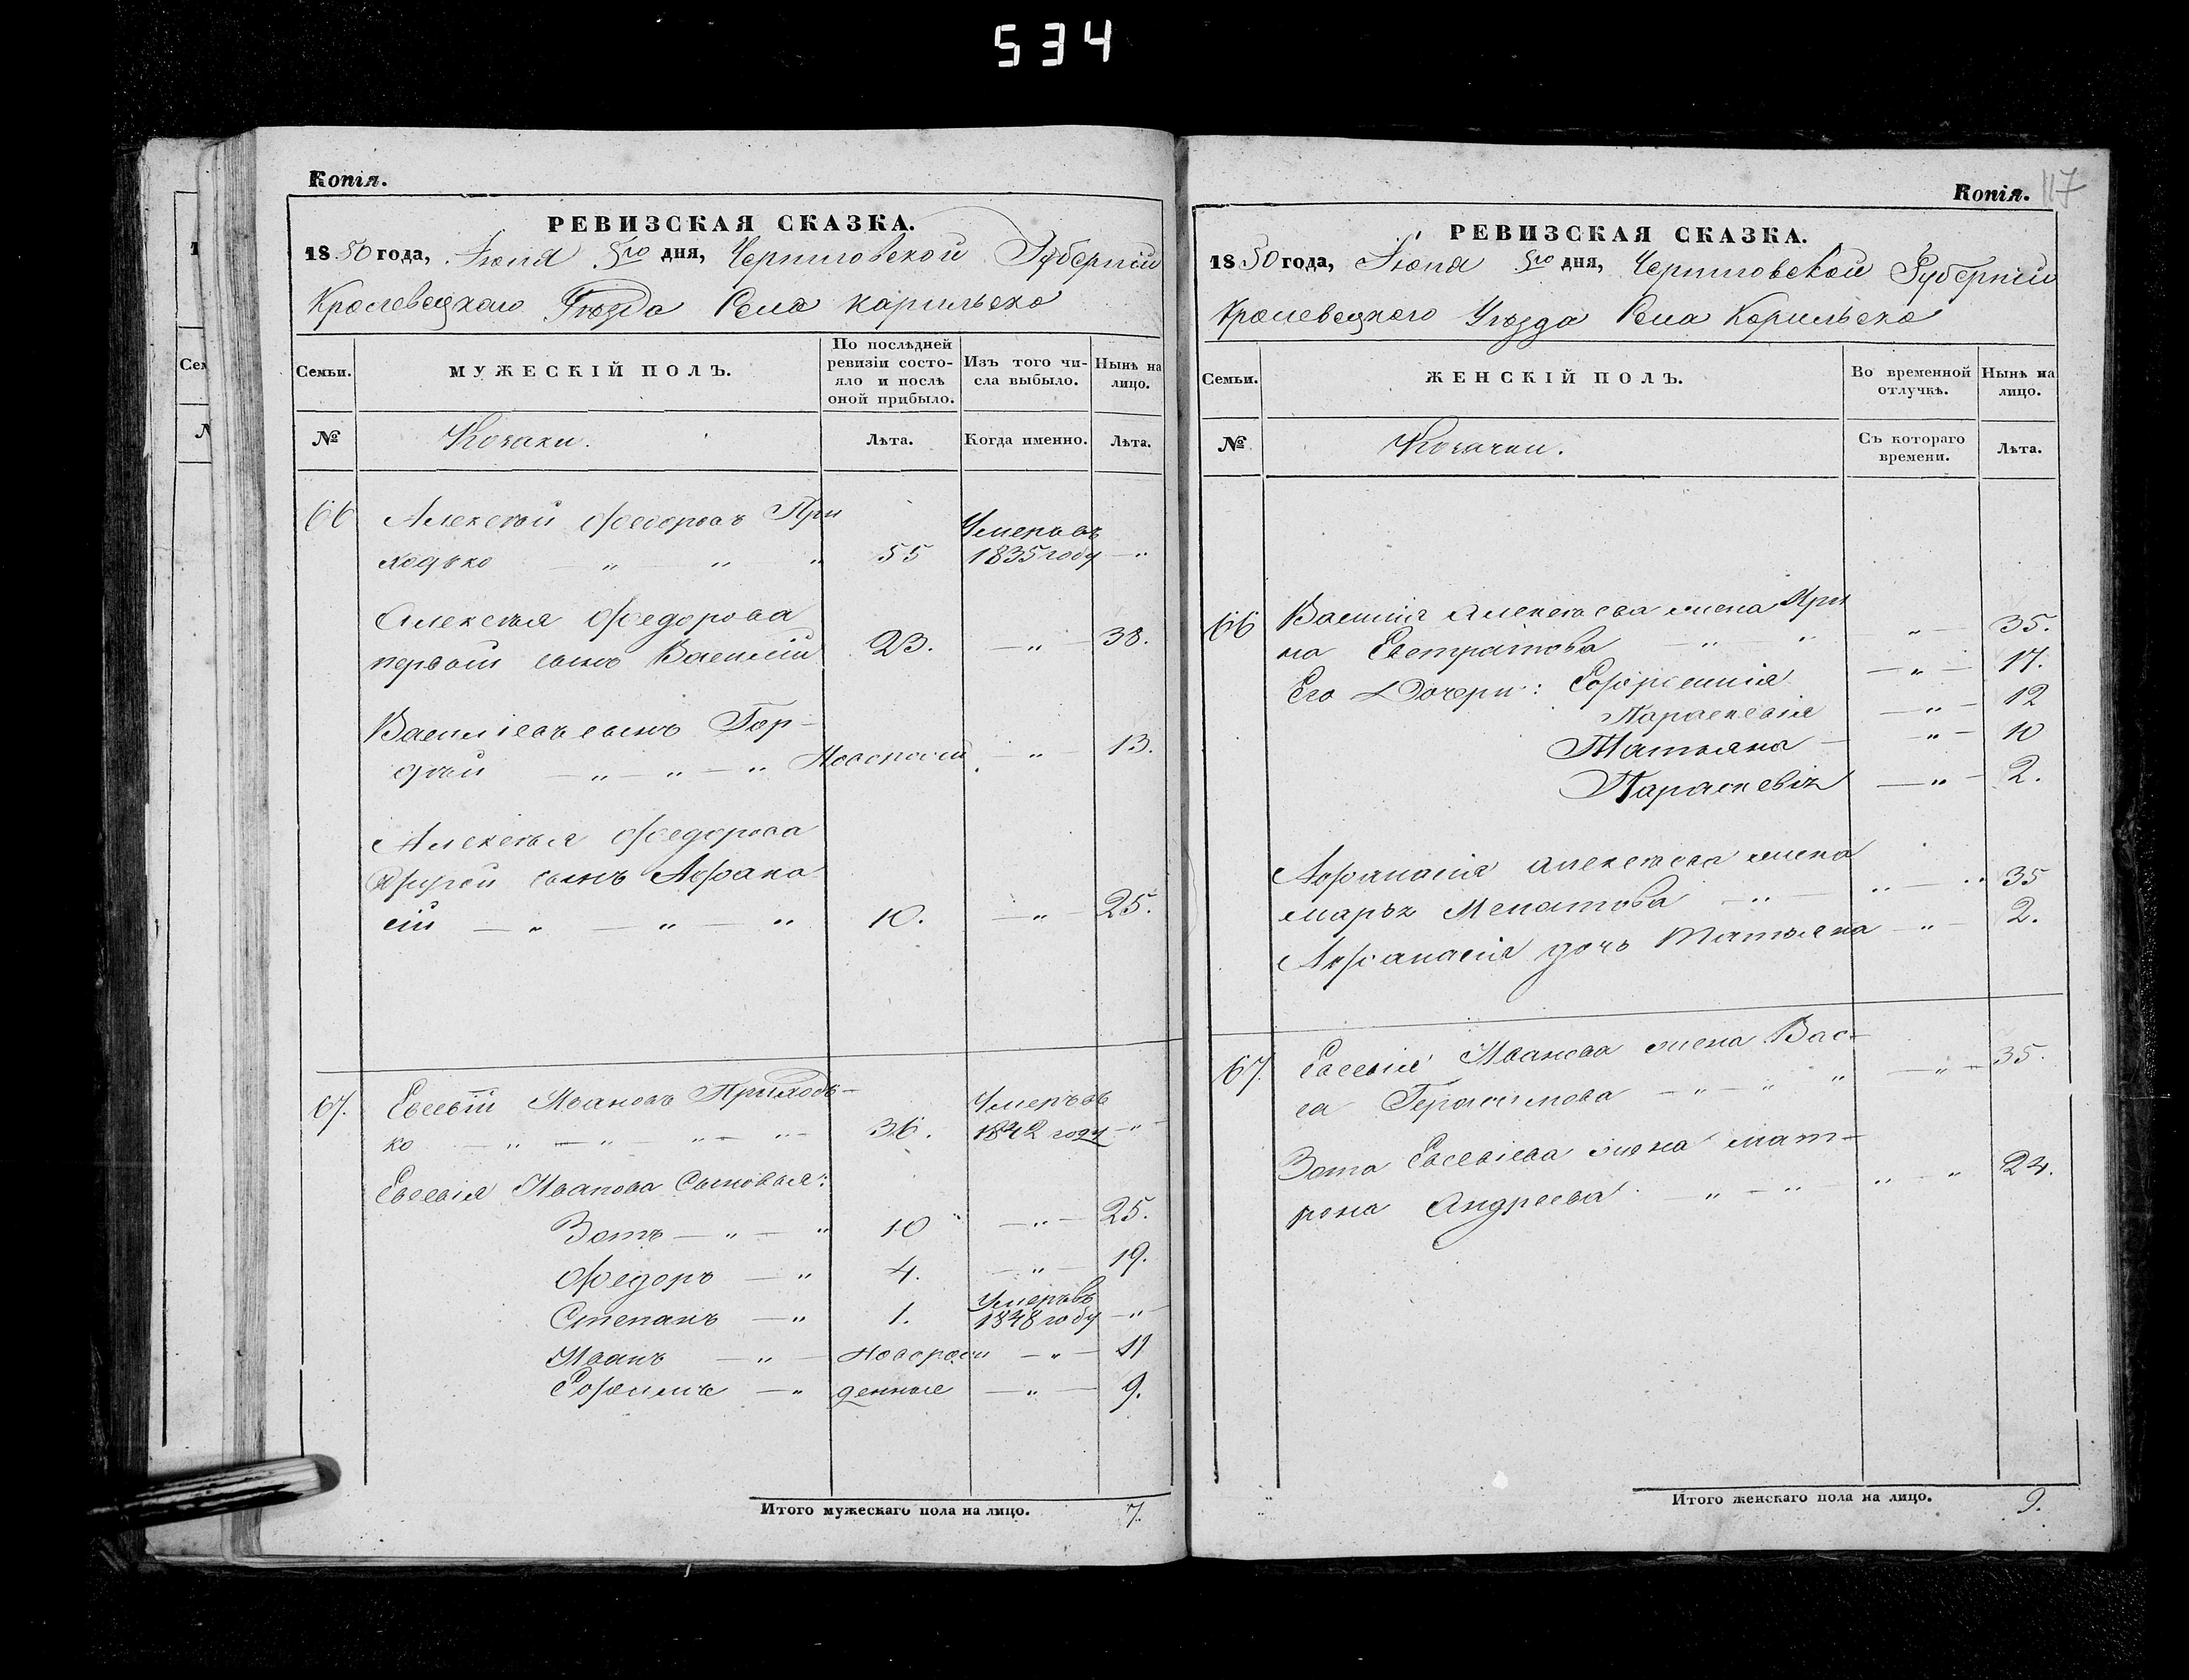 534
Копія.
РЕВИЗСКАЯ СКАЗКА.
1850 года, Іюня 5го дня, Черниговской Губерніи
Кролевецкаго Уѣзда Села Карильска
Семьи.
МУЖЕСКІЙ ПОЛЪ.
По послѣдней ревизіи состояло и послѣ оной прибыло.
Изъ того числа выбыло.
Нынѣ на лицо.
№
Козаки.
Лѣта.
Когда именно.
Лѣта.
66 Алексѣй Федоровъ При
ходько — " " " 55 Умеръ въ 1835 году — "
Алексѣя Федорова
первый сынъ Василій 23. — " — 38.
Васильевъ сынъ Гор-
дѣй — " — " — " Новорожд. — " — 13.
Алексѣя Федорова
другой сынъ Афана
сій — " — " — " 10. — " — 25.
67. Евсевій Ивановъ Приходь-
ко — " — " — " — " — 36. Умеръ въ 1842 году — " —
Евсевія Иванова Сыновья:
Зотъ — " — " 10 — " — 25.
Федоръ — " 4. — " — 19.
Степанъ — " 1. Умеръ въ 1848 году — " —
Иванъ — " — Новорож — " — 11
Ефимъ — " денные — " — 9.
Итого мужескаго пола на лицо. 7.
117
Копія.
РЕВИЗСКАЯ СКАЗКА.
1850 года, Іюня 5го дня, Черниговской Губерніи
Кролевецкаго Уѣзда Села Корильска
Семьи.
ЖЕНСКІЙ ПОЛЪ.
Во временной отлучкѣ.
Нынѣ на лицо.
№
Козачки.
Съ котораго времени.
Лѣта.
66 Василія Алексѣева жена Ири
на Евстратова — " — " — " — 35.
Его Дочери: Ефросинія — " — 17.
Параскевія — " — 12
Татьяна — — " — 10
Параскевія — " — 2.
Афанасія Алексѣева жена
Марья Игнатова — " — " — " 35
Афанасія дочь Татьяна — " — 2.
67. Евсевія Иванова жена Вас-
са Герасимова — " — " " — " — 35.
Зота Евсевіева жена Мат-
рона Андреева — " — " — " — " 24.
Итого женскаго пола на лицо. 9.